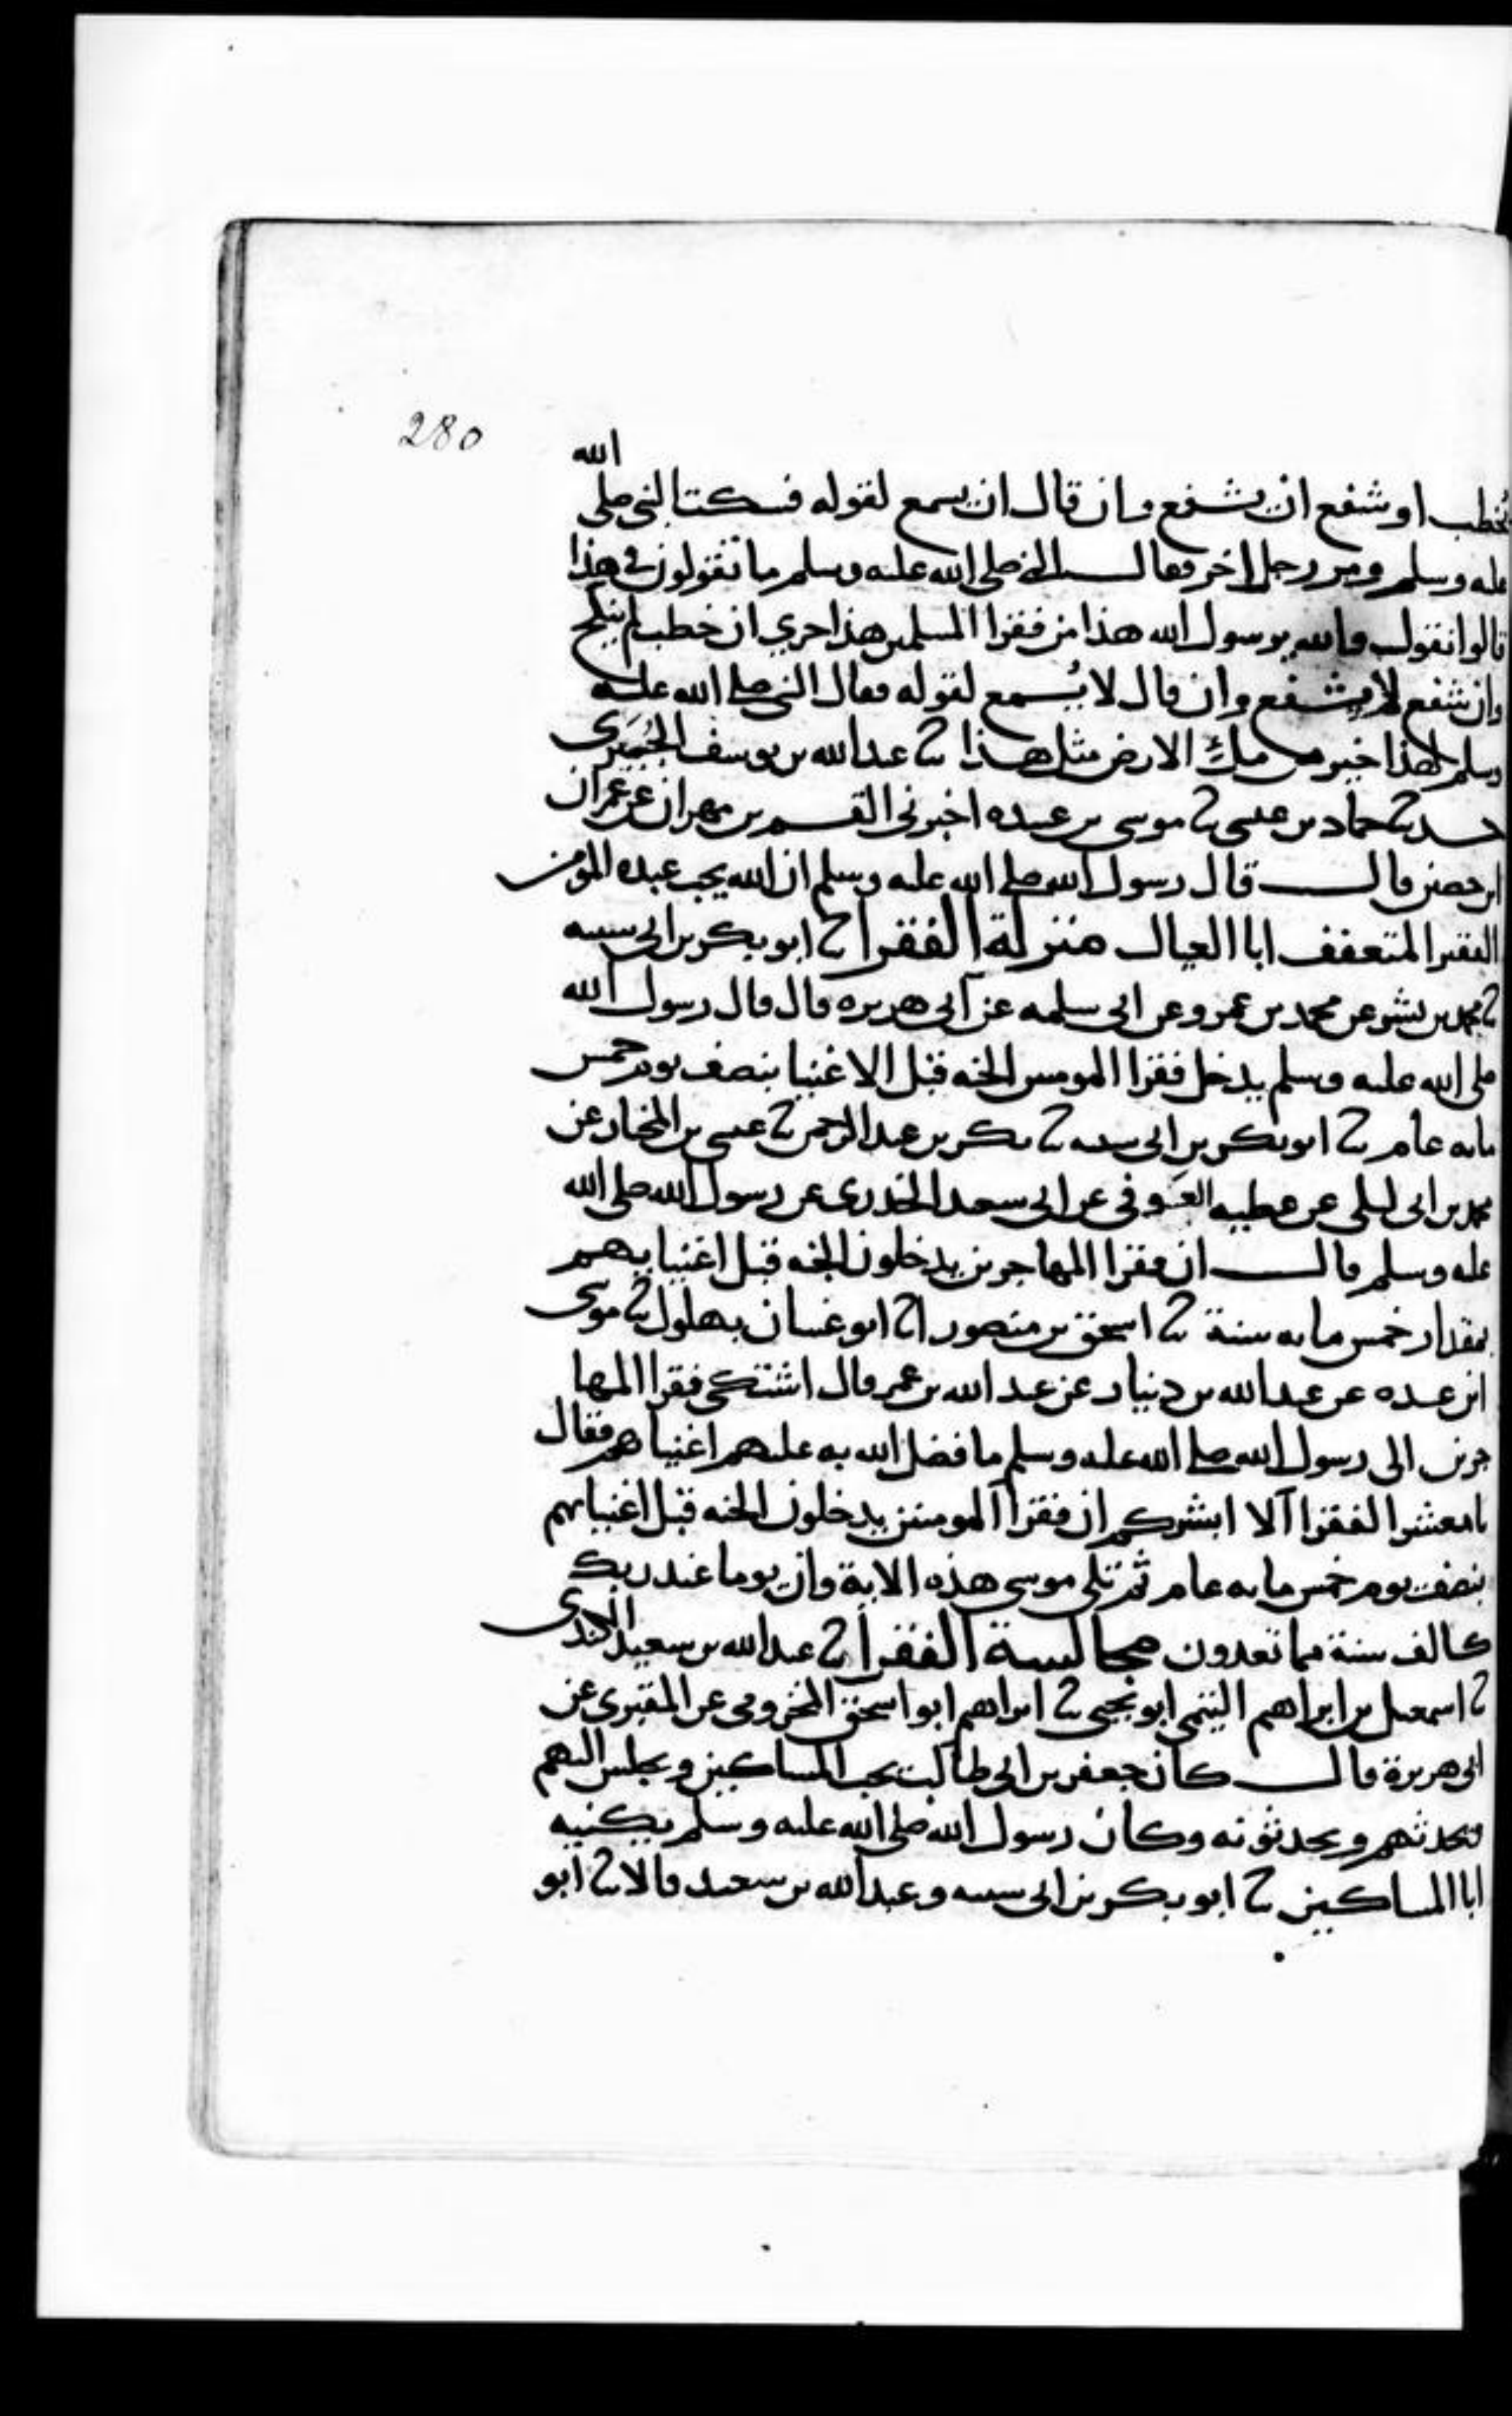 280
الله
يخطب او شفع ان يشفع وان قال ان يسمع لقوله فسكت النبي صلى
عليه وسلم ومر رجل اخر فقال النبي صلى الله عليه وسلم ما تقولون في هذا
قالوا نقول والله يرسول الله هذا من فقرا المسلمين هذا حري ان خطب لم ينكح
وان شفع لا يشفع وان قال لا يُسمع لقوله فقال النبي صلى الله عليه
وسلم لهذا خير من ملئ الارض مثل هذا ثنا عبد الله بن يوسف الجُبَيرى
ثنا حماد بن عيسى ثنا موسى بن عبيده اخبرنى القسم بن مهران عن عمران
ابن حصين قال قال رسول الله صلى الله عليه وسلم ان الله يحب عبده المؤمن
الفقير المتعفف ابا العيال منزلة الفقرا ثنا ابو بكر بن ابى شيبه
ثنا محمد بن بشر عن محمد بن عمرو عن ابى سلمه عن ابى هريره قال قال رسول الله
صلى الله عليه وسلم يدخل فقرا المومنين الجنه قبل الاغنيا بنصف يوم خمس
مايه عام ثنا ابو بكر بن ابى شيبه ثنا بكر بن عبد الرحمن ثنا عيسى بن المختار عن
محمد بن ابى ليلى عن عطيه العَوفى عن ابى سعيد الخدرى عن رسول الله صلى الله
عليه وسلم قال ان فقرا المهاجرين يدخلون الجنه قبل اغنيايهم
بمقدار خمس مايه سنة ثنا اسحق بن منصور انا ابو غسان بهلول ثنا موسى
ابن عبيده عن عبد الله بن دينار عن عبد الله بن عمر قال اشتكى فقرا المها
جرين الى رسول الله صلى الله عليه وسلم ما فضل الله به عليهم اغنياهم فقال
يا معشر الفقرا الا ابشركم ان فقرا المومنين يدخلون الجنه قبل اغنيايهم
بنصف يوم خمس مايه عام ثم تلى موسى هذه الاية وان يوما عند ربك
كالف سنة مما تعدون مجالسة الفقرا ثنا عبد الله بن سعيد الكندى
ثنا اسمعيل بن ابراهيم التيمى ابو يحيى ثنا ابراهيم ابو اسحق المخزومى عن المقبرى عن
ابى هريرة قال كان جعفر بن ابى طالب يحب المساكين ويجلس اليهم
ويحدثهم ويحدثونه وكان رسول الله صلى الله عليه وسلم يكنيه
ابا المساكين ثنا ابو بكر بن ابى شيبه وعبد الله بن سعيد قالا ثنا ابو